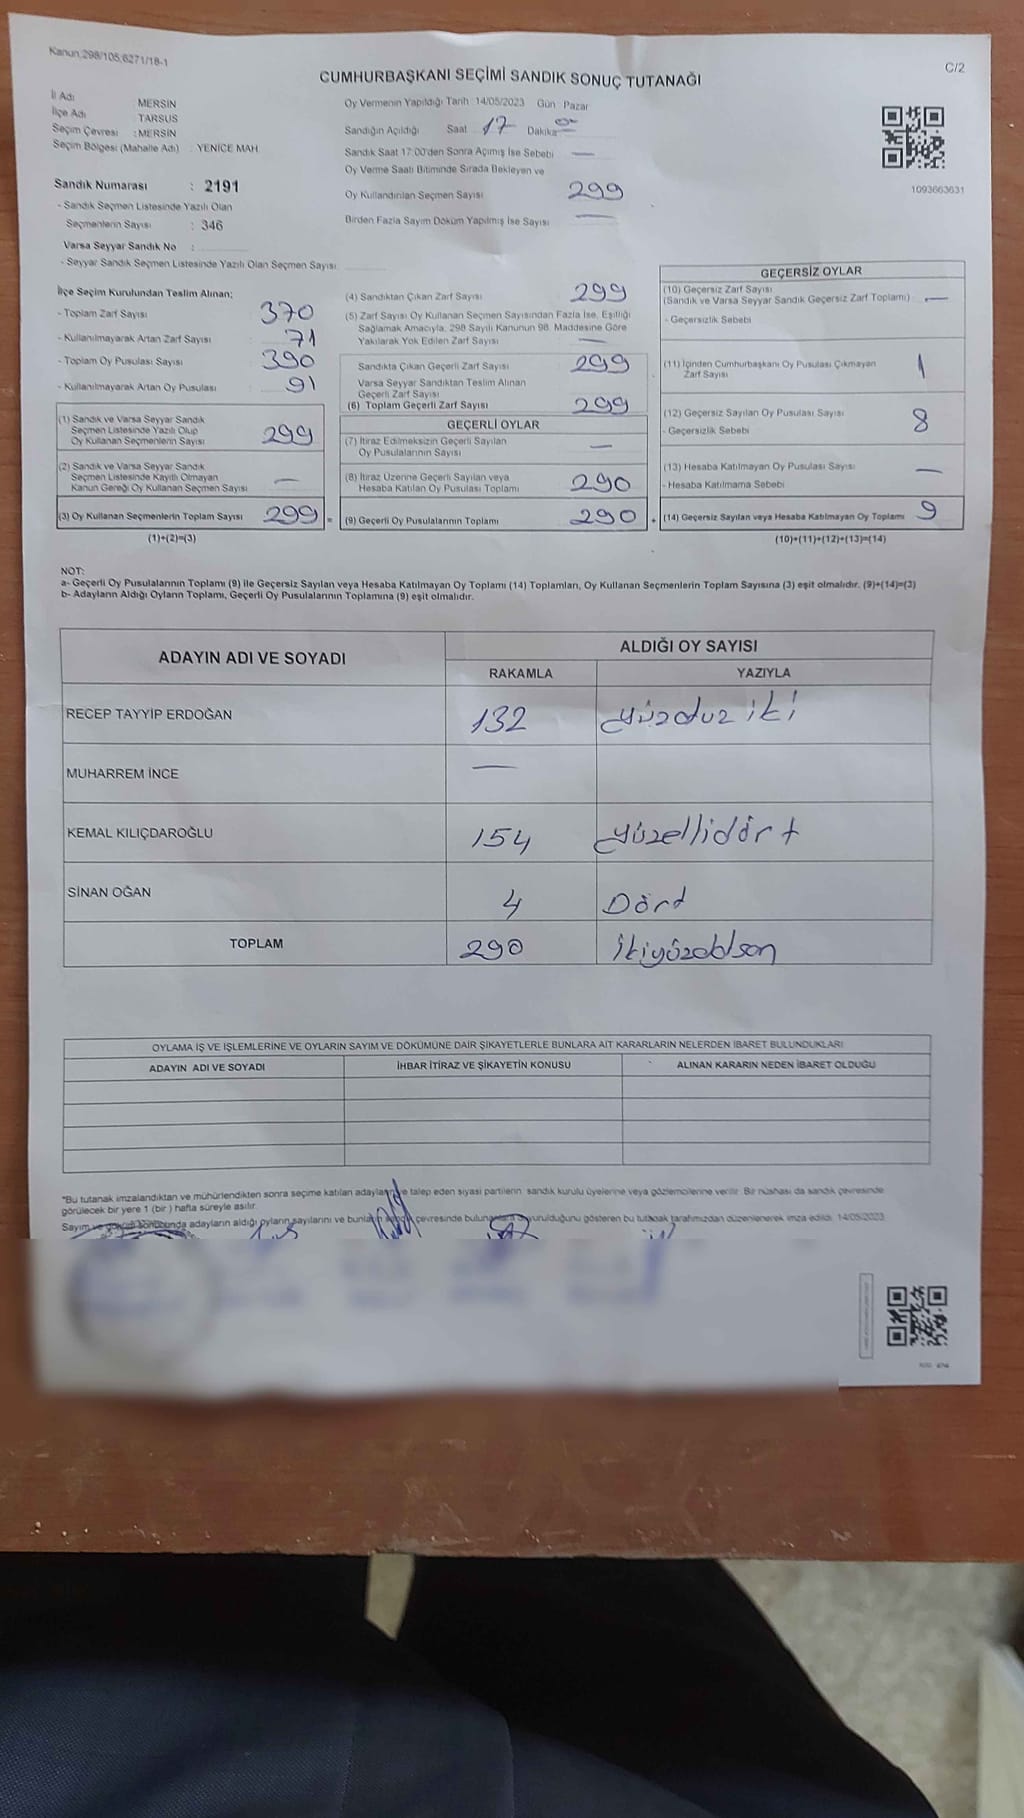 Kanun;298/105;6271/18-1
C/2
CUMHURBAŞKANI SEÇİMİ SANDIK SONUÇ TUTANAĞI
İl Adı MERSİN
İlçe Adı TARSUS
Seçim Çevresi : MERSİN
Seçim Bölgesi (Mahalle Adı) : YENİCE MAH.
Sandık Numarası : 2191
- Sandık Seçmen Listesinde Yazılı Olan
Seçmenlerin Sayısı : 346
Varsa Seyyar Sandık No :
- Seyyar Sandık Seçmen Listesinde Yazılı Olan Seçmen Sayısı
Oy Vermenin Yapıldığı Tarih :14/05/2023 Gün Pazar
Sandığın Açıldığı Saat 17 Dakika
Sandık Saat 17:00'den Sonra Açımış İse Sebebi —
Oy Verme Saati Bitiminde Sırada Bekleyen ve
Oy Kullandırılan Seçmen Sayısı 299
Birden Fazla Sayım Döküm Yapılmış İse Sayısı —
1093663631
İlçe Seçim Kurulundan Teslim Alınan;
- Toplam Zarf Sayısı 370
- Kullanılmayarak Artan Zarf Sayısı : 71
- Toplam Oy Pusulası Sayısı 390
- Kullanılmayarak Artan Oy Pusulası : 91
(1) Sandık ve Varsa Seyyar Sandık
Seçmen Listesinde Yazılı Olup
Oy Kullanan Seçmenlerin Sayısı 299
(2) Sandık ve Varsa Seyyar Sandık
Seçmen Listesinde Kayıtlı Olmayan
Kanun Gereği Oy Kullanan Seçmen Sayısı —
(3) Oy Kullanan Seçmenlerin Toplam Sayısı 299 =
(1)+(2)=(3)
(4) Sandıktan Çıkan Zarf Sayısı 299
(5) Zarf Sayısı Oy Kullanan Seçmen Sayısından Fazla İse, Eşitliği
Sağlamak Amacıyla, 298 Sayılı Kanunun 98. Maddesine Göre
Yakılarak Yok Edilen Zarf Sayısı —
Sandıkta Çıkan Geçerli Zarf Sayısı 299
Varsa Seyyar Sandıktan Teslim Alınan
Geçerli Zarf Sayısı
(6) Toplam Geçerli Zarf Sayısı 299
GEÇERLİ OYLAR
(7) İtiraz Edilmeksizin Geçerli Sayılan
Oy Pusulalarının Sayısı —
(8) İtiraz Üzerine Geçerli Sayılan veya
Hesaba Katılan Oy Pusulası Toplamı 290
(9) Geçerli Oy Pusulalarının Toplamı 290 +
GEÇERSİZ OYLAR
(10) Geçersiz Zarf Sayısı
(Sandık ve Varsa Seyyar Sandık Geçersiz Zarf Toplamı) : —
- Geçersizlik Sebebi
(11) İçinden Cumhurbaşkanı Oy Pusulası Çıkmayan
Zarf Sayısı 1
(12) Geçersiz Sayılan Oy Pusulası Sayısı 8
- Geçersizlik Sebebi
(13) Hesaba Katılmayan Oy Pusulası Sayısı : —
- Hesaba Katılmama Sebebi
(14) Geçersiz Sayılan veya Hesaba Katılmayan Oy Toplamı 9
(10)+(11)+(12)+(13)=(14)
NOT:
a- Geçerli Oy Pusulalarının Toplamı (9) ile Geçersiz Sayılan veya Hesaba Katılmayan Oy Toplamı (14) Toplamları, Oy Kullanan Seçmenlerin Toplam Sayısına (3) eşit olmalıdır. (9)+(14)=(3)
b- Adayların Aldığı Oyların Toplamı, Geçerli Oy Pusulalarının Toplamına (9) eşit olmalıdır.
ADAYIN ADI VE SOYADI
ALDIĞI OY SAYISI
RAKAMLA YAZIYLA
RECEP TAYYİP ERDOĞAN 132 yüzduz iki
MUHARREM İNCE —
KEMAL KILIÇDAROĞLU 154 yüzellidört
SİNAN OĞAN 4 Dörd
TOPLAM 290
OYLAMA İŞ VE İŞLEMLERİNE VE OYLARIN SAYIM VE DÖKÜMÜNE DAİR ŞİKAYETLERLE BUNLARA AİT KARARLARIN NELERDEN İBARET BULUNDUKLARI
ADAYIN ADI VE SOYADI İHBAR İTİRAZ VE ŞİKAYETİN KONUSU ALINAN KARARIN NEDEN İBARET OLDUĞU
*Bu tutanak imzalandıktan ve mühürlendikten sonra seçime katılan adaylara ve talep eden siyasi partilerin sandık kurulu üyelerine veya gözlemcilerine verilir. Bir nüshası da sandık çevresinde
görülecek bir yere 1 (bir ) hafta süreyle asılır.
Sayım ve döküm sonucunda adayların aldığı oyların sayılarını ve bunların çevresinde bulunanlara duyurulduğunu gösteren bu tutanak tarafımızdan düzenlenerek imza edildi. 14/05/2023